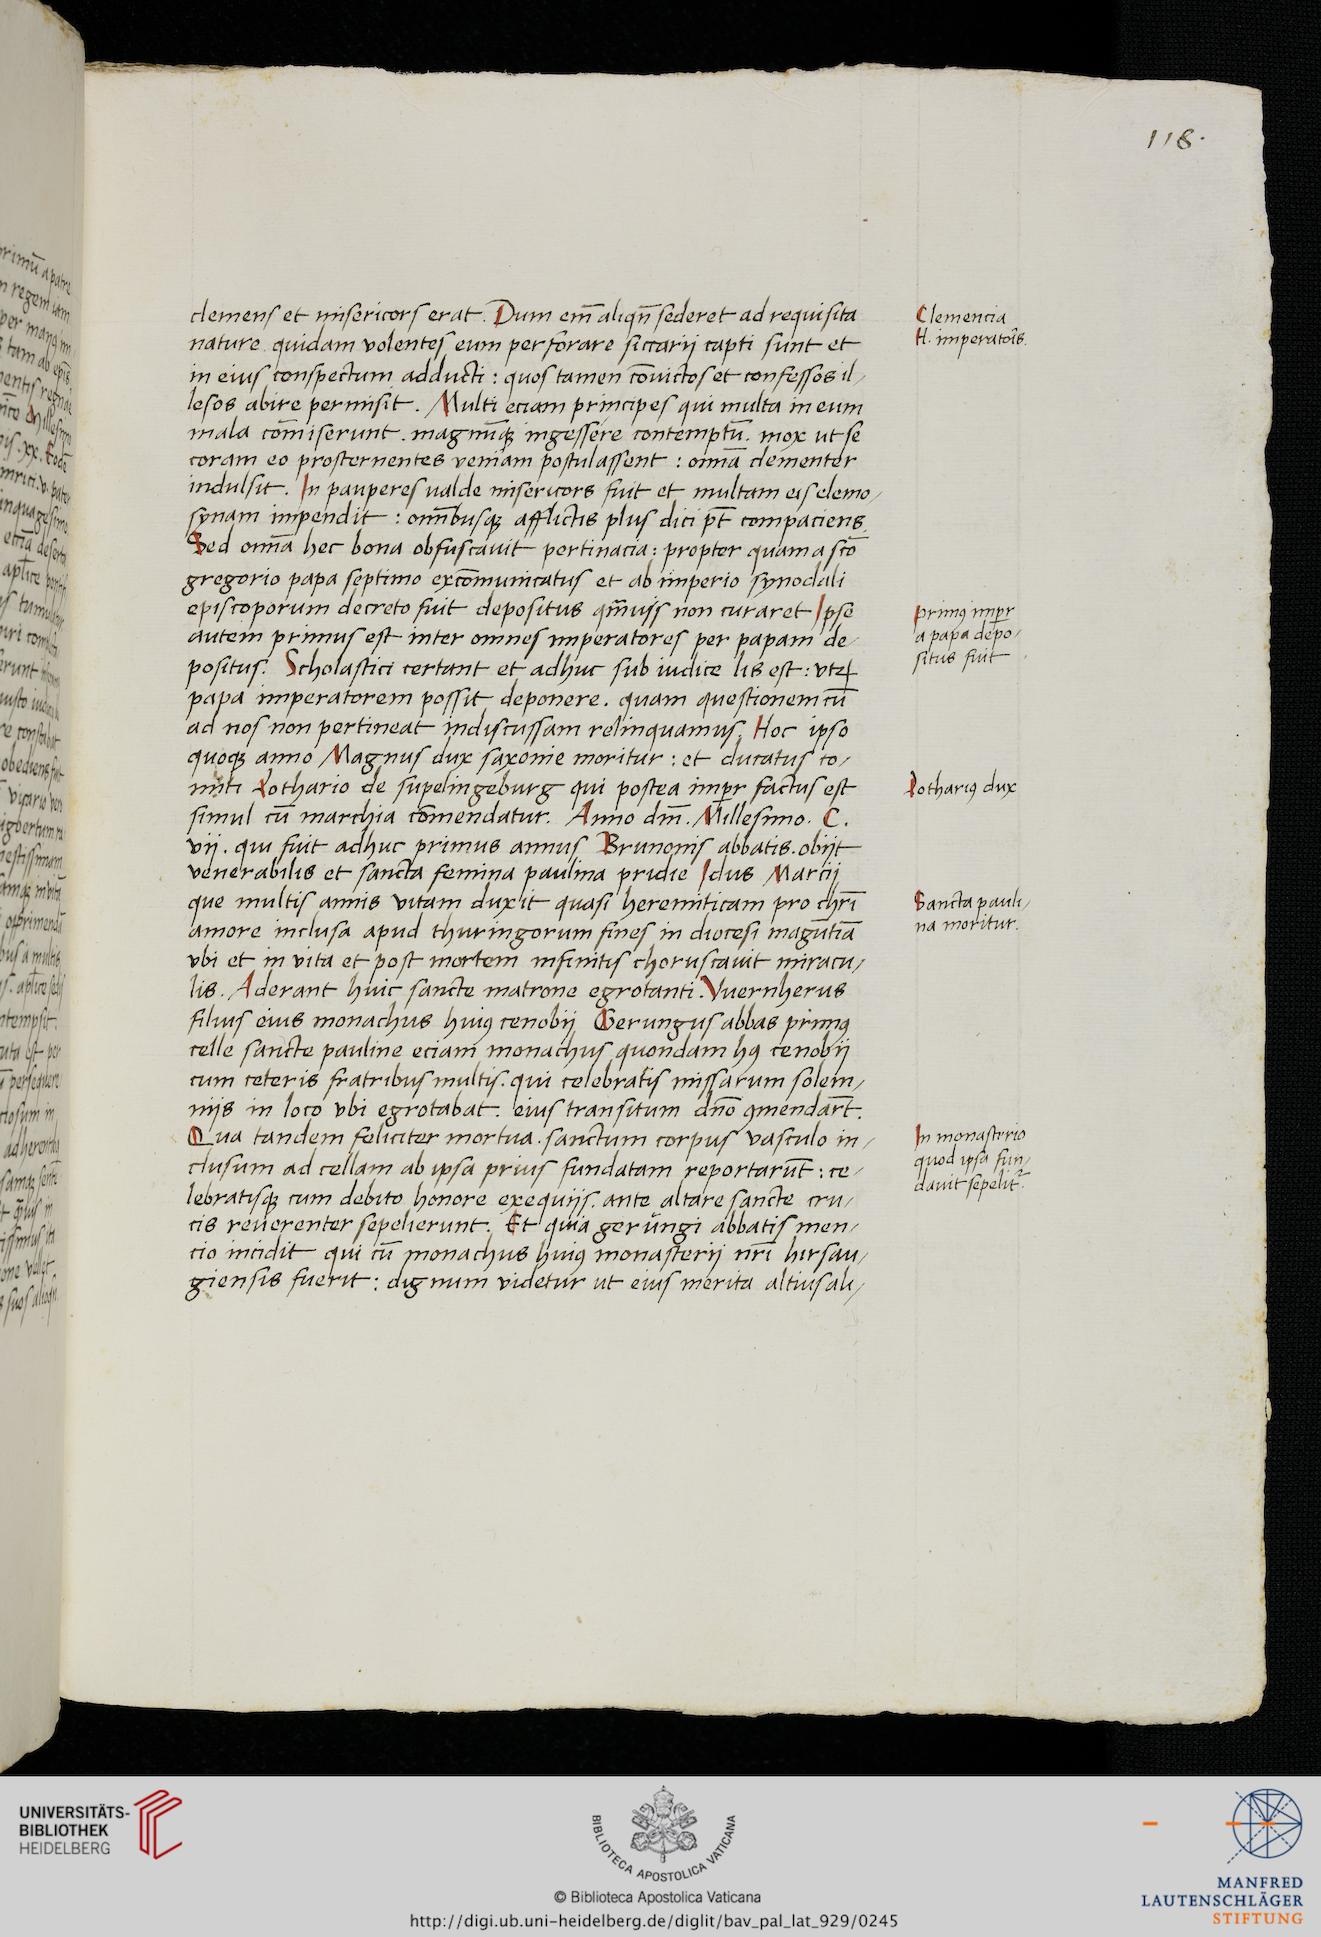 118.
clemens et misericors erat. Dum em̄ aliqñ sederet ad requisita
nature quidam volentes eum perforare siccarij capti sunt et
in eius conspectum adducti : quos tamen cōvictos et confessos il⸗
lesos abire permisit. Multi eciam principes qui multa in eum
mala cōmiserunt. magnūqꝫ ingessere contemptū. mox ut se
coram eo prosternentes veniam postulassent : omīa clementer
indulsit. In pauperes valde misericors fuit et multam eis elemo⸗
synam impendit : omībusqꝫ afflictis plus dici pōt compaciens.
Sed omīa hec bona obfuscavit pertinacia : propter quam a scō
gregorio papa septimo excōmunicatus et ab imperio synodali
episcoporum decreto fuit depositus qm̄vis non curaret Ipse
autem primus est inter omnes imperatores per papam de⸗
positus. Scholastici certant et adhuc sub iudice lis est : vtꝝ
papa imperatorem possit deponere. quam questionem cū
ad nos non pertineat indiscussam relinquamus. Hoc ipso
quoqꝫ anno Magnus dux saxonie moritur : et ducatus co⸗
miti Lothario de supelingeburg qui postea imp̄r factus est
simul cū marchia cōmendatur. Anno dm̄. Millesimo. C.
vij. qui fuit adhuc primus annus Brunonis abbatis. obijt
venerabilis et sancta femina paulina pridie Idus Marcij
que multis annis vitam duxit quasi heremiticam pro chrī
amore inclusa apud thuringorum fines in diocesi magūtīa
vbi et in vita et post mortem infinitis choruscavit miracu⸗
lis. Aderant huic sancte matrone egrotanti. Vuernherus
filius eius monachus huiꝰ cenobij Gerungus abbas primꝰ
celle sancte pauline eciam monachus quondam hꝰ cenobij
cum ceteris fratribus multis. qui celebratis missarum solem⸗
niis in loco vbi egrotabat. eius transitum dn̄o ꝯmendarūt.
Qua tandem feliciter mortua. sanctum corpus vasculo in⸗
clusum ad cellam ab ipsa prius fundatam reportarūt : ce⸗
lebratisqꝫ cum debito honore exequijs. ante altare sancte cru⸗
cis reverenter sepelierunt. Et quia gerungi abbatis men⸗
cio incidit qui cū monachus huiꝰ monasterij nr̄i hirsau⸗
giensis fuerit : dignum videtur ut eius merita altius ali⸗
Clemencia
H. imperatoīs.
primꝰ imp̄r
a papa depo⸗
situs fuit
Lothariꝰ dux
Sancta pauli⸗
na moritur.
In monasterio
quod ipsa fun⸗
davit sepelit᷑.
UNIVERSITÄTS-
BIBLIOTHEK
HEIDELBERG
BIBLIOTECA APOSTOLICA VATICANA
© Biblioteca Apostolica Vaticana
http://digi.ub.uni-heidelberg.de/diglit/bav_pal_lat_929/0245
MANFRED
LAUTENSCHLÄGER
STIFTUNG